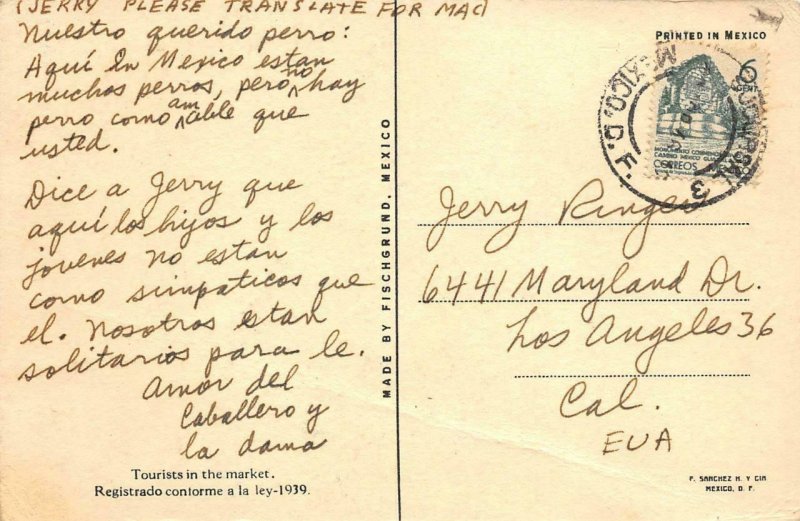 (JERRY PLEASE TRANSLATE FOR MAC)
Nuestro querido perro:
Aquí En Mexico estan
muchos perros, pero no hay
perro como amable que
usted.
Dice a Jerry que
aquí los hijos y los
jovenes no estan
como simpaticos que
el. Nosotros estan
solitarios para le.
Amor del
Caballero y
la dama
Tourists in the market.
Registrado conforme a la ley-1939.
MADE BY FISCHGRUND, MEXICO
PRINTED IN MEXICO
MEXICO, D. F.
3
6
CORREOS
Jerry Ringer
6441 Maryland Dr.
Los Angeles 36
Cal.
EUA
F. SANCHEZ H. Y CIA
MEXICO, D. F.